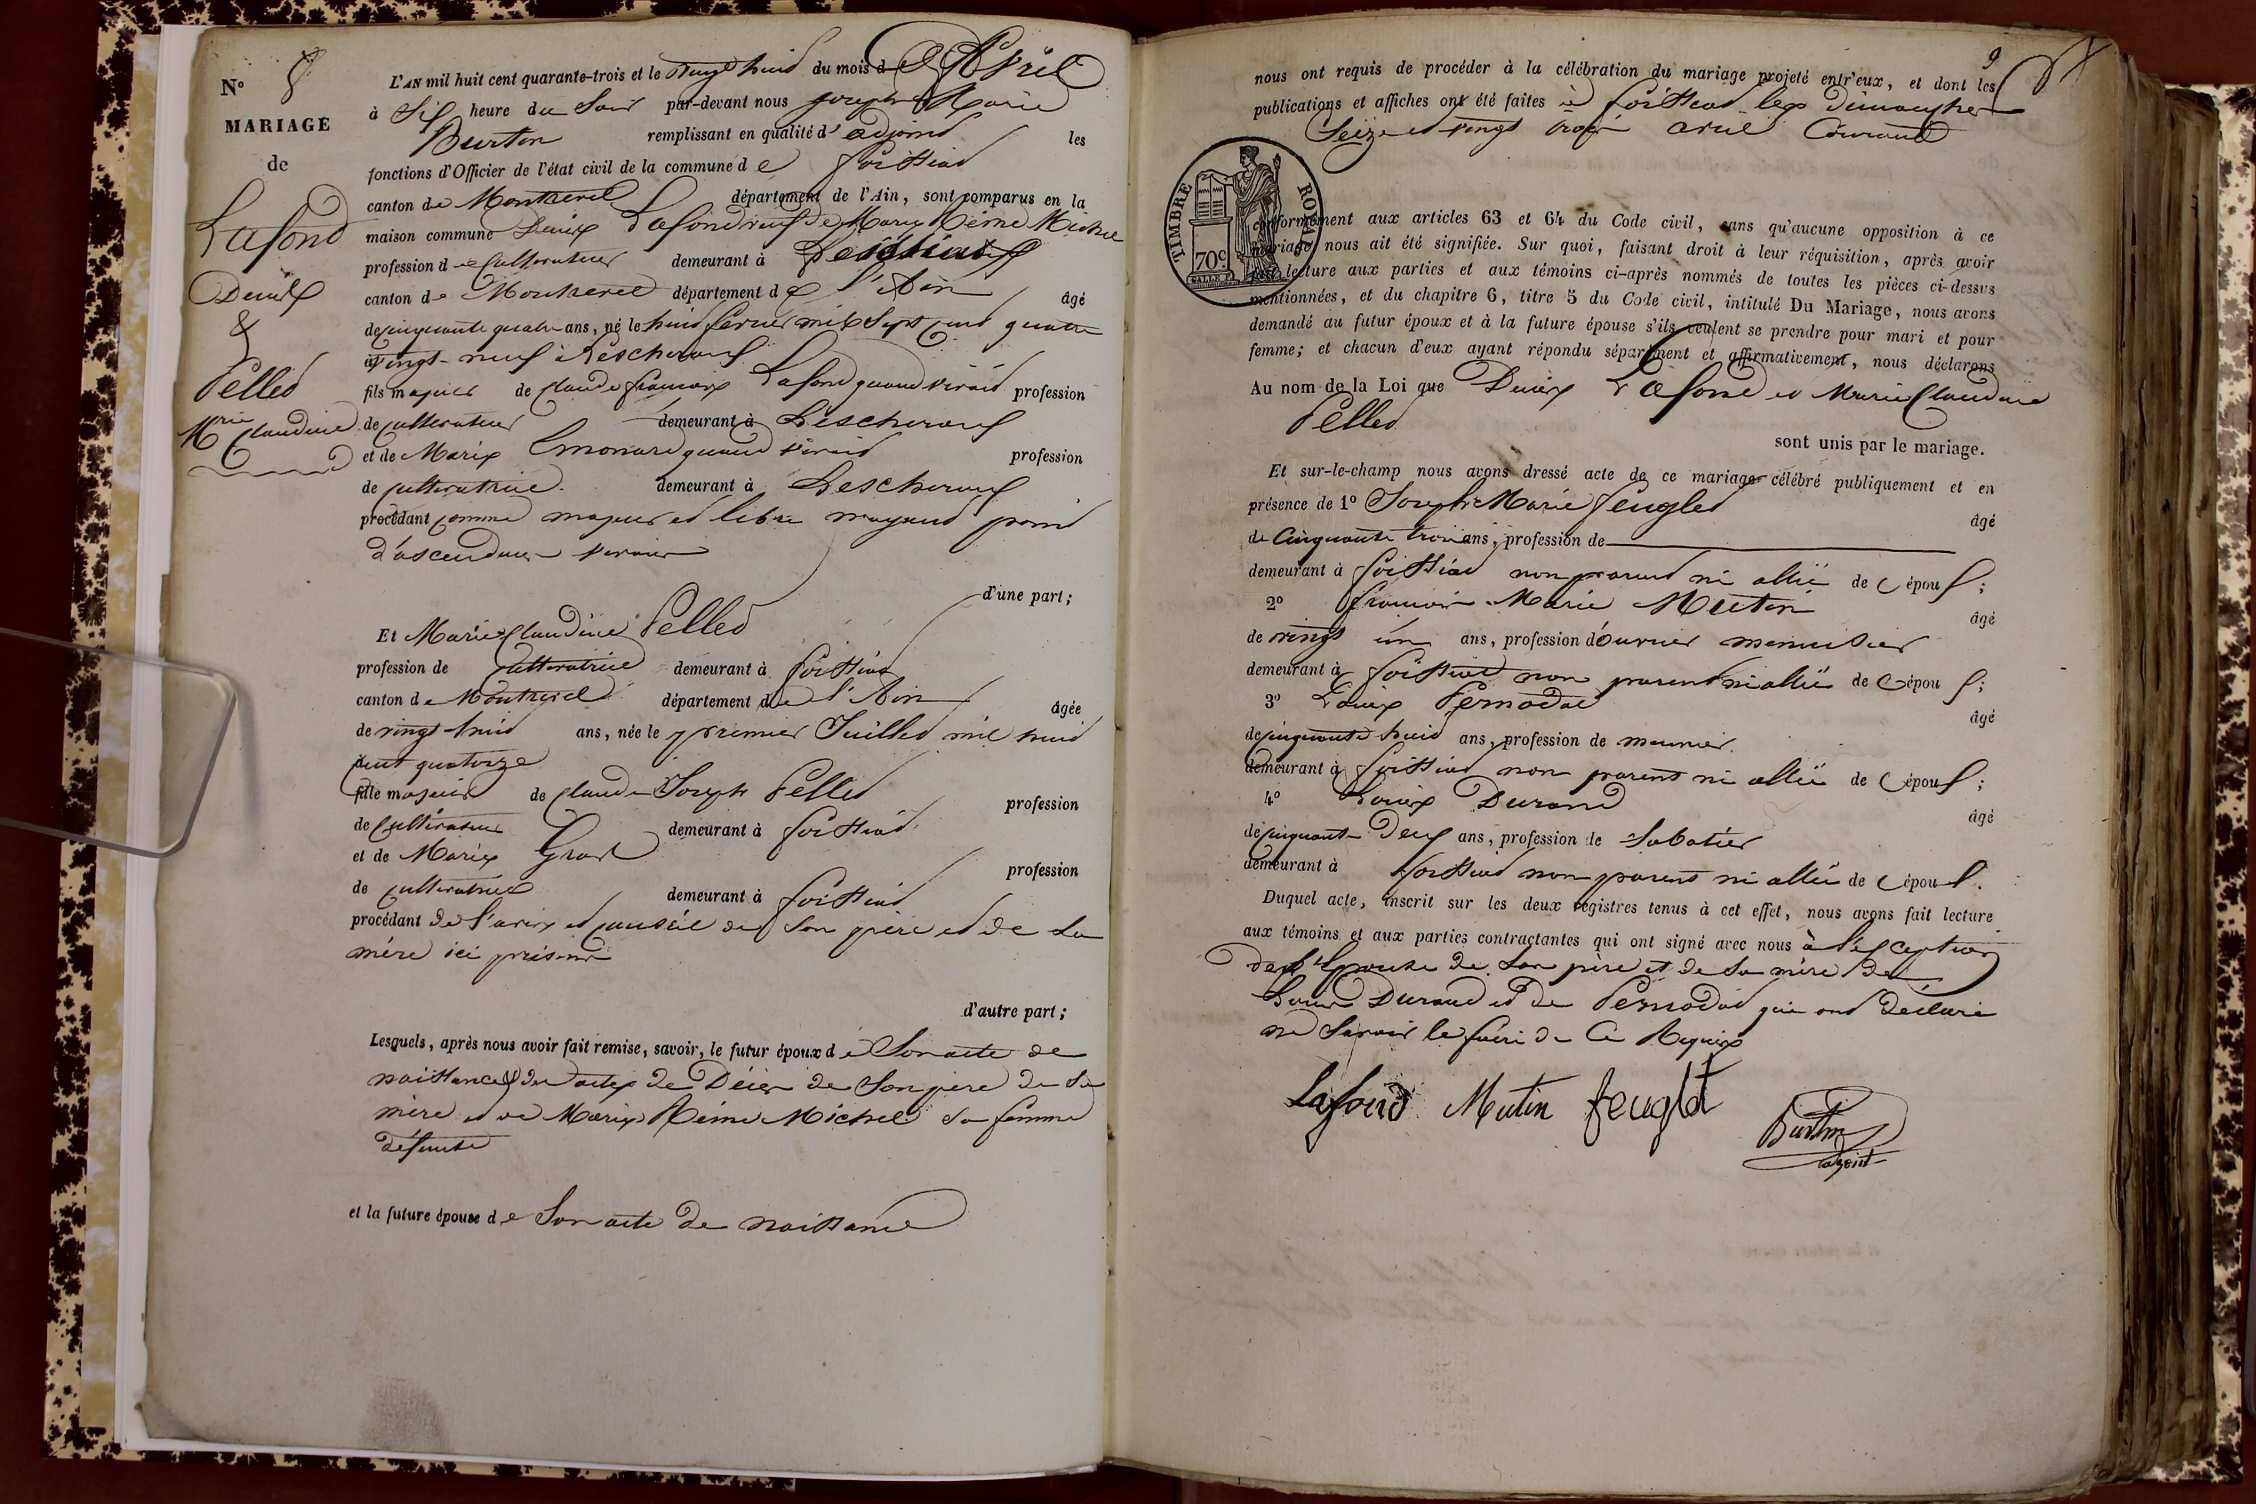 No 8
MARIAGE
de
Lafond
Denix
&
Pellet
Mrie Claudine
L'AN mil huit cent quarante-trois et le vingt huit du mois d'Avril
à Six heure du Soir par-devant nous joseph Marie
Burtin remplissant en qualité d'adjoint les
fonctions d'Officier de l'état civil de la commune de foissiat
canton de Montrevel département de l'Ain, sont comparus en la
maison commune Denix Lafond veuf de Marie Reine Michel
profession de Cultivateur demeurant à
canton de Montrevel département de l'Ain âgé
de cinquante quatre ans, né le huit fevrier mil Sept cent quatre
vingt-neuf à Lescheroux
fils majeur de Claude françois Lafond quand vivait profession
de cultivateur demeurant à Lescheroux
et de Marie Emonard quand vivait profession
de cultivatrice demeurant à Lescheroux
procédant comme majeur et libre n'ayant point
d'ascendans vivans
d'une part;
Et Marie Claudine Pellet
profession de Cultivatrice demeurant à foissiat
canton de Montrevel département de l'Ain âgée
de vingt-huit ans, née le premier Juillet mil huit
cent quatorze
fille majeure de Claude Joseph Pellet profession
de Cultivateur demeurant à foissiat
et de Marie profession
de cultivatrice demeurant à foissiat
procédant de l'avis et conseil de Son père et de Sa
mére ici présens
d'autre part;
Lesquels, après nous avoir fait remise, savoir, le futur époux de Son acte de
naissance des actes de Décès de Son pere de Sa
mère et de Marie Reine Michel Sa femme
défunte
et la future épouse de Son acte de naissance
9
nous ont requis de procéder à la célébration du mariage projeté entr'eux, et dont les
publications et affiches ont été faites à foissiat les dimanches
Seize et vingt trois avril Courant
TIMBRE ROYAL
70c.
conformément aux articles 63 et 64 du Code civil, sans qu'aucune opposition à ce
mariage nous ait été signifiée. Sur quoi, faisant droit à leur réquisition, après avoir
fait lecture aux parties et aux témoins ci-après nommés de toutes les pièces ci-dessus
mentionnées, et du chapitre 6, titre 5 du Code civil, intitulé Du Mariage, nous avons
demandé au futur époux et à la future épouse s'ils veulent se prendre pour mari et pour
femme; et chacun d'eux ayant répondu séparément et affirmativement, nous déclarons
Au nom de la Loi que Denix Lafond et Marie Claudine
Pellet
sont unis par le mariage.
Et sur-le-champ nous avons dressé acte de ce mariage célébré publiquement et en
présence de 1o Joseph Marie feuglet âgé
de Cinquante trois ans, profession de
demeurant à foissiat non parent ni allié de c épou s;
2o françois Marie Mutin âgé
de vingt un ans, profession d'ouvrier menuisier
demeurant à foissiat non parent ni allié de c épou s;
3o Louis Pernodat âgé
de cinquante huit ans, profession de meunier
demeurant à foissiat non parent ni allié de c épou s;
4o Louis Durand âgé
de cinquante Deux ans, profession de Sabotier
demeurant à foissiat non parent ni allié de c épou s.
Duquel acte, inscrit sur les deux registres tenus à cet effet, nous avons fait lecture
aux témoins et aux parties contractantes qui ont signé avec nous à l'exception
de l'Epouse de Son père et de Sa mère de
Louis Durand et de Pernodat qui ont déclaré
ne Savoir le faire de Ce Requis
Lafond Mutin feuglet
Burtin
adjoint